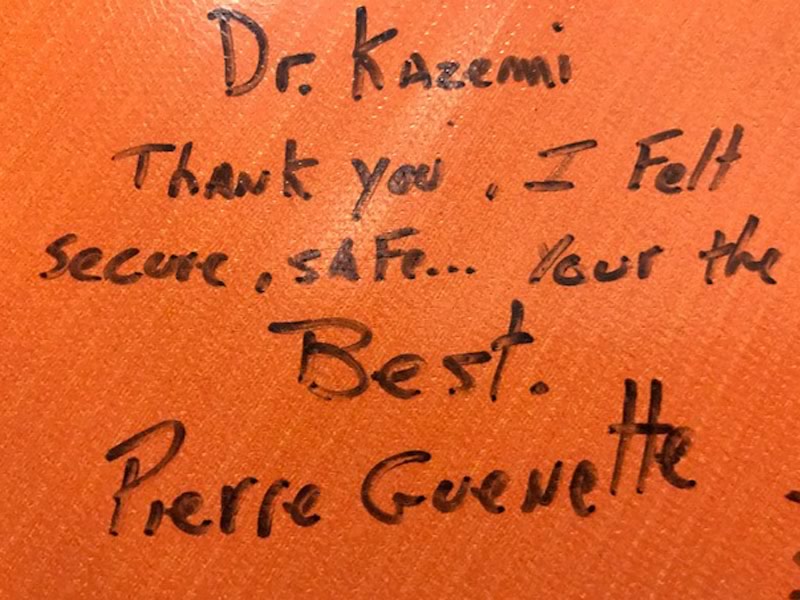 Dr. Kazemi
Thank you. I Felt
secure, safe... Your the
Best.
Pierre Guenette